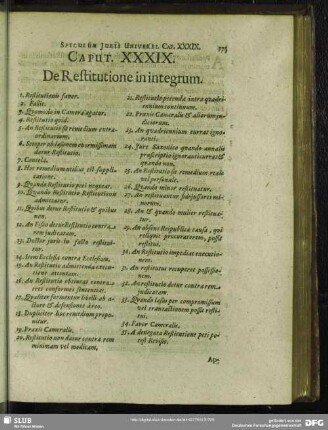 SPECULUM JURIS UNIVERSI. CAP. XXXIX.
775
CAPUT. XXXIX.
De Restitutione in integrum.
1. Restitutionis favor.
2. Fallit.
3. Quomodo in Camera agatur.
4. Restitutio quid.
5. An Restitutio sit remedium extra-
ordinarium.
6. Semper ob læsionem enormissimam
datur Restitutio.
7. Cautela.
8. Hoc remedium mitius est suppli-
catione.
9. Quando Restitutio peti nequeat.
10. Quando duplicem Restitutionem
admittatur.
11. Quibus detur Restitutio & quibus
non.
12. An Filio detur Restitutio contra
rem judicatam.
13. Doctor juris in facto restitui-
tur.
14. Item Ecclesia contra Ecclesiam.
15. An Restitutio admittenda
attentam.
16. An Restitutio obtineat contra
tres conformes sententias.
17. Qualiter formentur libelli ab a-
ctore & defensiones à reo.
18. Dupliciter hoc remedium propo-
nitur.
19. Praxis Cameralis.
20. Restitutio non datur contra rem
minimam vel modicam.
21. Restitutio petenda intra quadri-
ennium continuum.
22. Praxis Cameralis & aliorum ju-
diciorum.
23. An quadriennium currat igno-
ranti.
24. Jure Saxonico quando annalis
præscriptio ignoranti currat &
quando non.
25. An Restitutio sit remedium reale
vel personale.
26. Quando minor restituatur.
27. An restituantur successores mi-
norum.
28. An & quando mulier restitua-
tur.
29. An absens Reipublicæ causa, qui
reliquit procuratorem, possit
restitui.
30. An Restitutio impediat executio-
nem.
31. An restitutus recuperet possessio-
nem.
32. An Restitutio detur contra rem
judicatam
33. Quando læsus per compromissum
vel transactionem possit resti-
tui.
34. Favor Cameralis.
35. A delegato Restitutione peti po-
test
SLUB
Wir führen Wissen.
gefördert von der
Deutschen Forschungsgemeinschaft